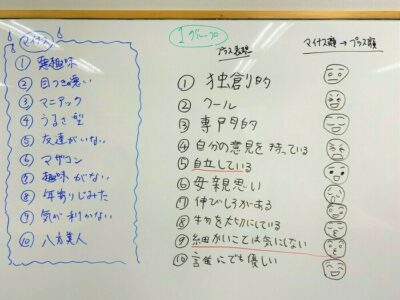 マイナス
① 悪趣味
② 目つき悪い
③ マニアック
④ うるさ型
⑤ 友達がいない
⑥ マザコン
⑦ 趣味がない
⑧ 年寄りじみた
⑨ 気が利かない
⑩ 八方美人
1グループ
プラス表現
① 独創的
② クール
③ 専門的
④ 自分の意見を持っている
⑤ 自立している
⑥ 母親思い
⑦ 伸びしろがある
⑧ を大切にしている
⑨ 細かいことは気にしない
⑩ にでも優しい
マイナス顔→プラス顔